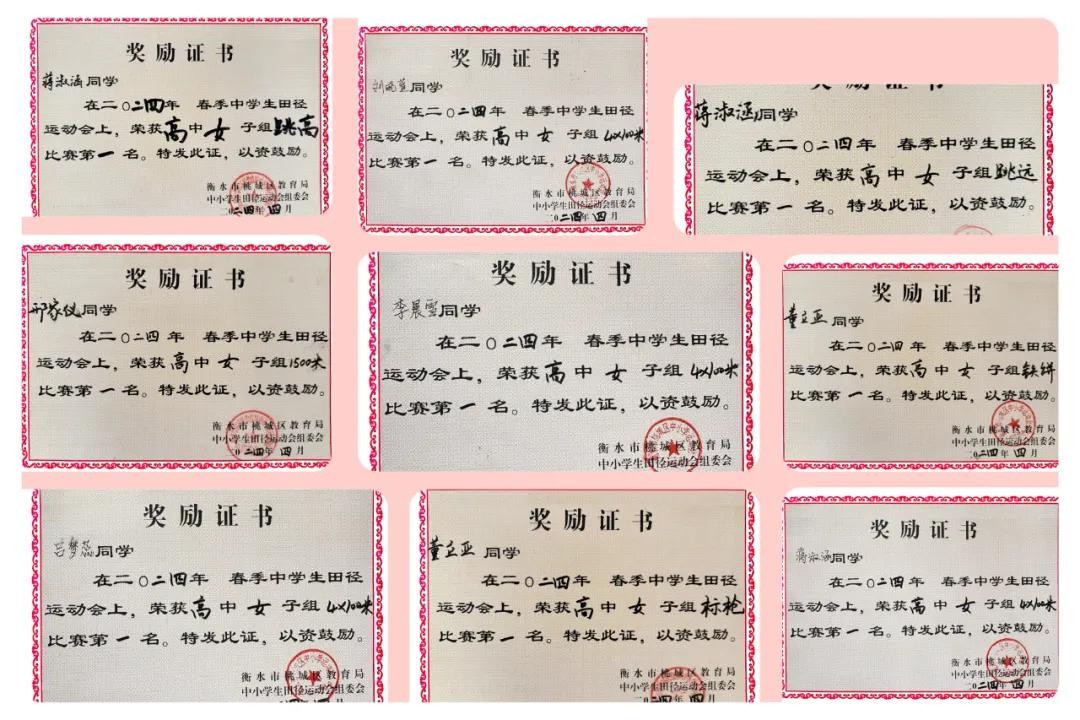 奖励证书
蒋淑涵同学
在二〇二四年 春季中学生田径
运动会上，荣获高中女子组跳高
比赛第一名。特发此证，以资鼓励。
衡水市桃城区教育局
中小学生田径运动会组委会
二〇二四年四月
奖励证书
同学
在二〇二四年 春季中学生田径
运动会上，荣获高中女子组4x100米
比赛第一名。特发此证，以资鼓励。
衡水市桃城区教育局
中小学生田径运动会组委会
二〇二四年四月
奖励证书
蒋淑涵同学
在二〇二四年 春季中学生田径
运动会上，荣获高中女子组跳远
比赛第一名。特发此证，以资鼓励。
奖励证书
邢家仪同学
在二〇二四年 春季中学生田径
运动会上，荣获高中女子组1500米
比赛第一名。特发此证，以资鼓励。
衡水市桃城区教育局
中小学生田径运动会组委会
二〇二四年四月
奖励证书
李晨雪同学
在二〇二四年 春季中学生田径
运动会上，荣获高中女子组4x100米
比赛第一名。特发此证，以资鼓励。
衡水市桃城区教育局
中小学生田径运动会组委会
奖励证书
董立亚同学
在二〇二四年 春季中学生田径
运动会上，荣获高中女子组铁饼
比赛第一名。特发此证，以资鼓励。
衡水市桃城区教育局
中小学生田径运动会组委会
二〇二四年四月
奖励证书
吕梦蕊同学
在二〇二四年 春季中学生田径
运动会上，荣获高中女子组4x100米
比赛第一名。特发此证，以资鼓励。
衡水市桃城区教育局
中小学生田径运动会组委会
奖励证书
董立亚同学
在二〇二四年 春季中学生田径
运动会上，荣获高中女子组标枪
比赛第一名。特发此证，以资鼓励。
衡水市桃城区教育局
中小学生田径运动会组委会
二〇二四年四月
奖励证书
蒋淑涵同学
在二〇二四年 春季中学生田径
运动会上，荣获高中女子组4x100米
比赛第一名。特发此证，以资鼓励。
衡水市桃城区教育局
中小学生田径运动会组委会
二〇二四年四月